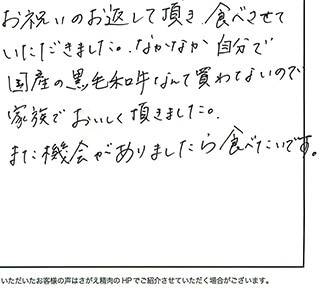 お祝いのお返しで頂き、食べさせて
いただきました。なかなか自分で
国産の黒毛和牛なんて買わないので
家族でおいしく頂きました。
また機会がありましたら食べたいです。
いただいたお客様の声はさがえ精肉のHPでご紹介させていただく場合がございます。